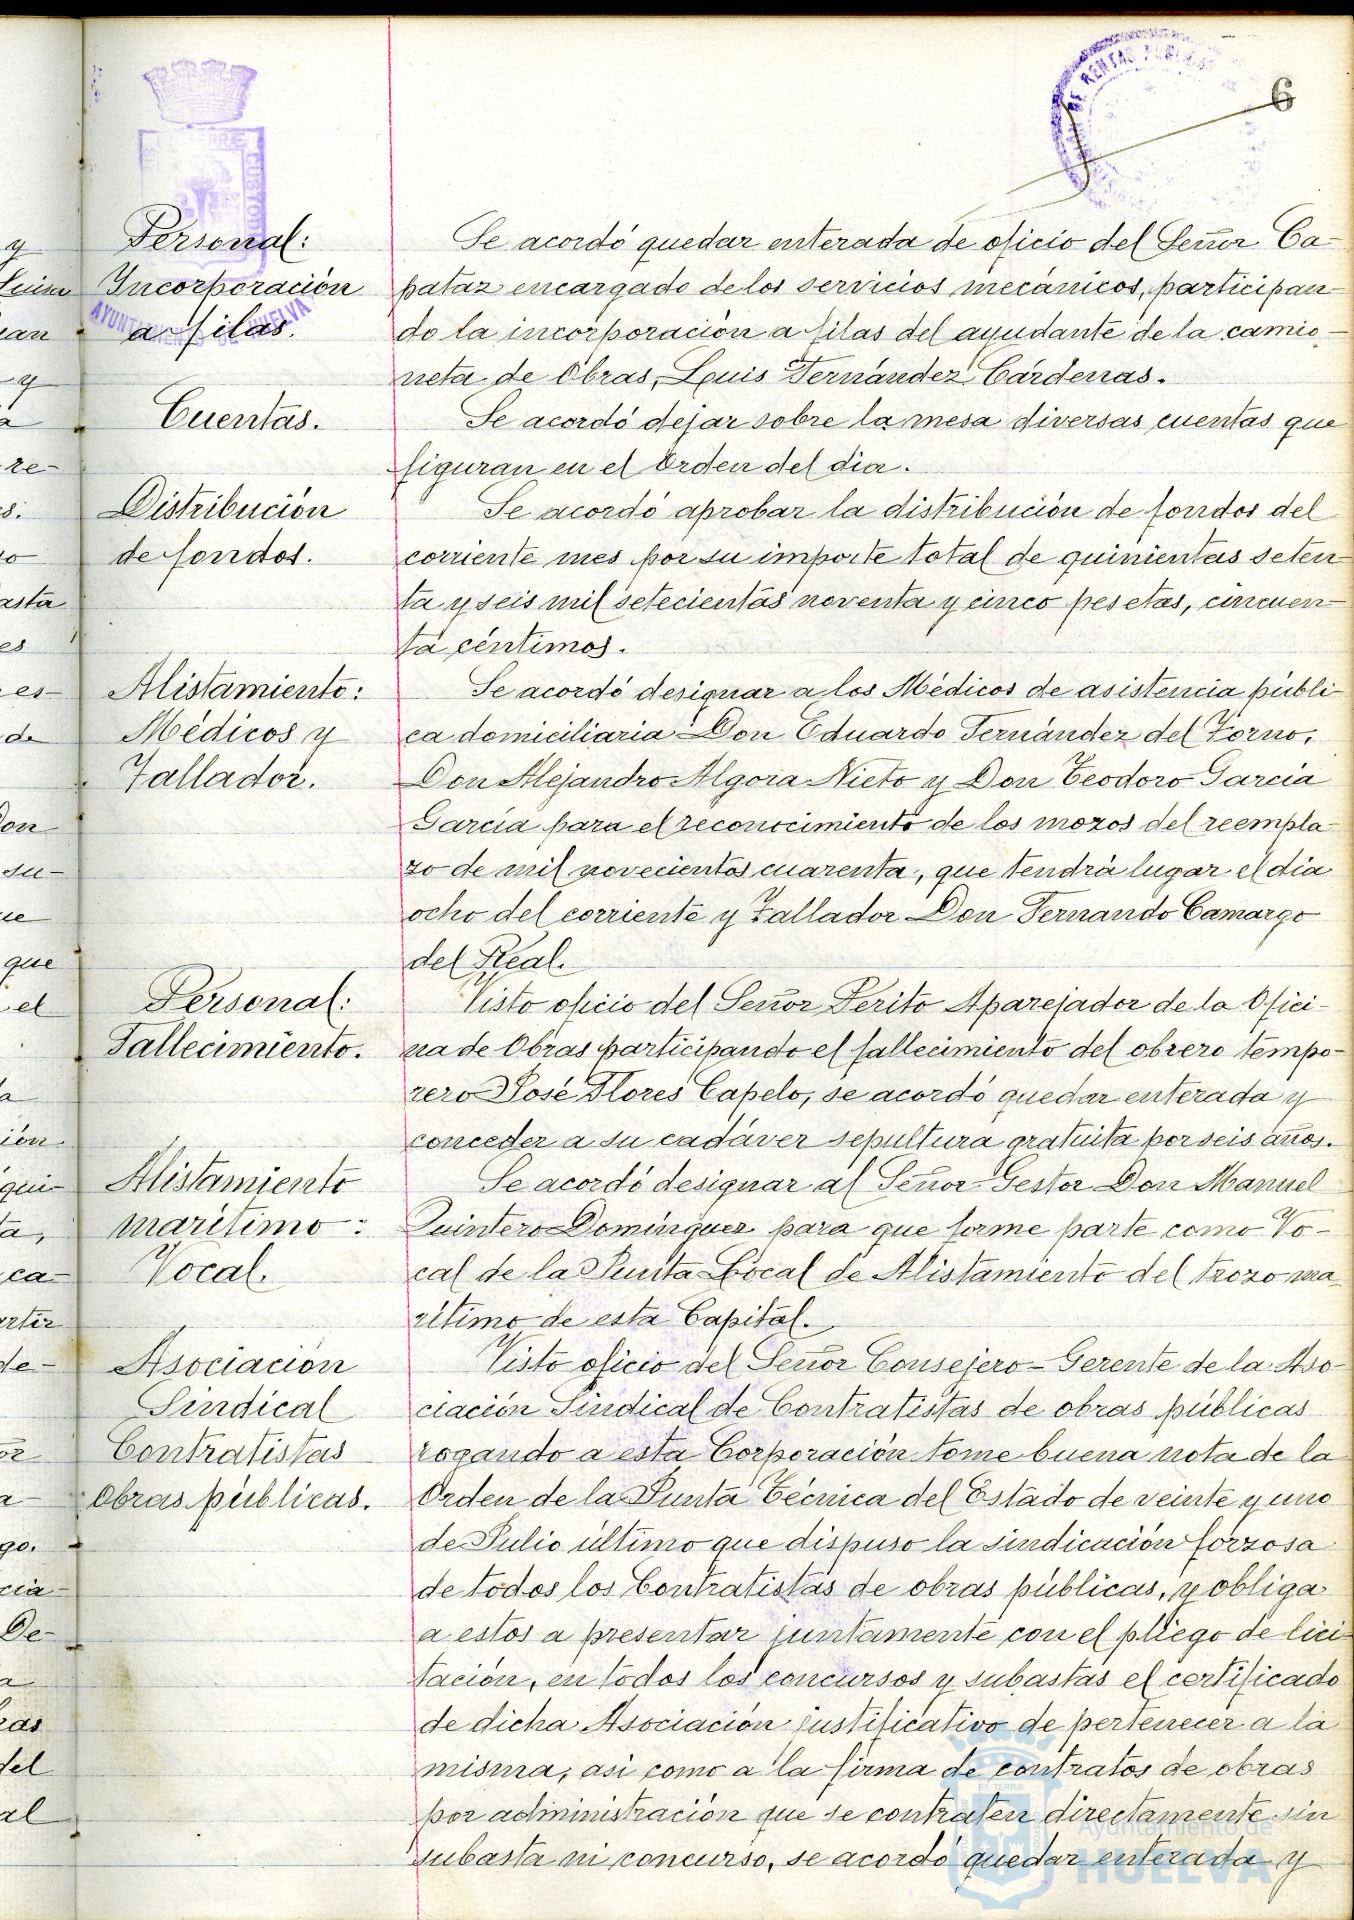 6
Personal:
Incorporación
a filas.
Se acordó quedar enterada de oficio del Señor Ca-
pataz encargado de los servicios mecánicos, participan-
do la incorporación a filas del ayudante de la camio-
neta de Obras, Luis Fernández Cárdenas.
Cuentas.
Se acordó dejar sobre la mesa diversas cuentas que
figuran en el Orden del dia.
Distribución
de fondos.
Se acordó aprobar la distribución de fondos del
corriente mes por su importe total de quinientas seten-
ta y seis mil setecientas noventa y cinco pesetas, cincuen-
ta céntimos.
Alistamiento:
Médicos y
Tallador.
Se acordó designar a los Médicos de asistencia públi-
ca domiciliaria Don Eduardo Fernández del Torno,
Don Alejandro Algora Nieto y Don Teodoro García
García para el reconocimiento de los mozos del reempla-
zo de mil novecientos cuarenta, que tendrá lugar el día
ocho del corriente y Tallador Don Fernando Camargo
del Real.
Personal:
Fallecimiento.
Visto oficio del Señor Perito Aparejador de la Ofici-
na de Obras participando el fallecimiento del obrero tempo-
rero José Flores Capelo, se acordó quedar enterada y
conceder a su cadáver sepultura gratuita por seis años.
Alistamiento
marítimo:
Vocal.
Se acordó designar al Señor Gestor Don Manuel
Quintero Domínguez para que forme parte como Vo-
cal de la Junta Local de Alistamiento del trozo ma
rítimo de esta Capital.
Asociación
Sindical
Contratistas
Obras públicas.
Visto oficio del Señor Consejero-Gerente de la Aso-
ciación Sindical de Contratistas de obras públicas
rogando a esta Corporación tome buena nota de la
Orden de la Junta Técnica del Estado de veinte y uno
de Julio último que dispuso la sindicación forzosa
de todos los Contratistas de obras públicas, y obliga
a estos a presentar juntamente con el pliego de lici-
tación, en todos los concursos y subastas el certificado
de dicha Asociación justificativo de pertenecer a la
misma, asi como a la firma de contratos de obras
por administración que se contraten directamente sin
subasta ni concurso, se acordó quedar enterada y
AYUNTAMIENTO DE HUELVA
Ayuntamiento de
HUELVA